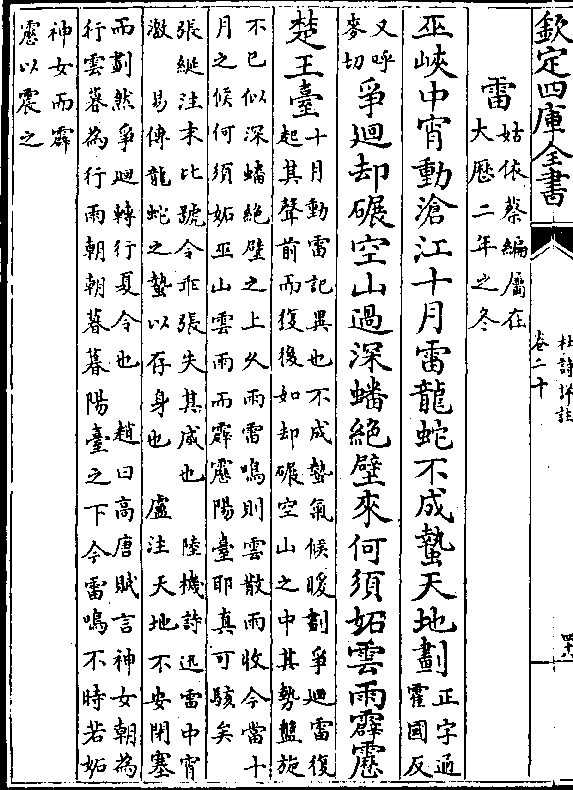 欽定四庫全書
杜詩詳註
卷二十
雷
姑依蔡編屬在
大歷二年之冬
巫峽中宵動滄江十月雷龍蛇不成蟄天地劃
正字通
霍國反
又呼
麥切
爭迴却碾空山過深蟠絶壁來何須妬雲雨霹靂
楚王臺
十月動雷記異也不成蟄氣候暖劃爭迴雷復
起其聲前而復後如却碾空山之中其勢盤旋
不已似深蟠絶壁之上久雨雷鳴則雲散雨收今當十
月之候何須妬巫山雲雨而霹靂陽臺耶真可駭矣
張綖注末比號令非張失其威也 陸機詩迅雷中宵
激 易傳龍蛇之蟄以存身也 盧注天地不安閉塞
而劃然爭迴轉行夏令也 趙曰高唐賦言神女朝為
行雲暮為行雨朝朝暮暮陽臺之下今雷鳴不時若妬
神女而霹
靂以震之